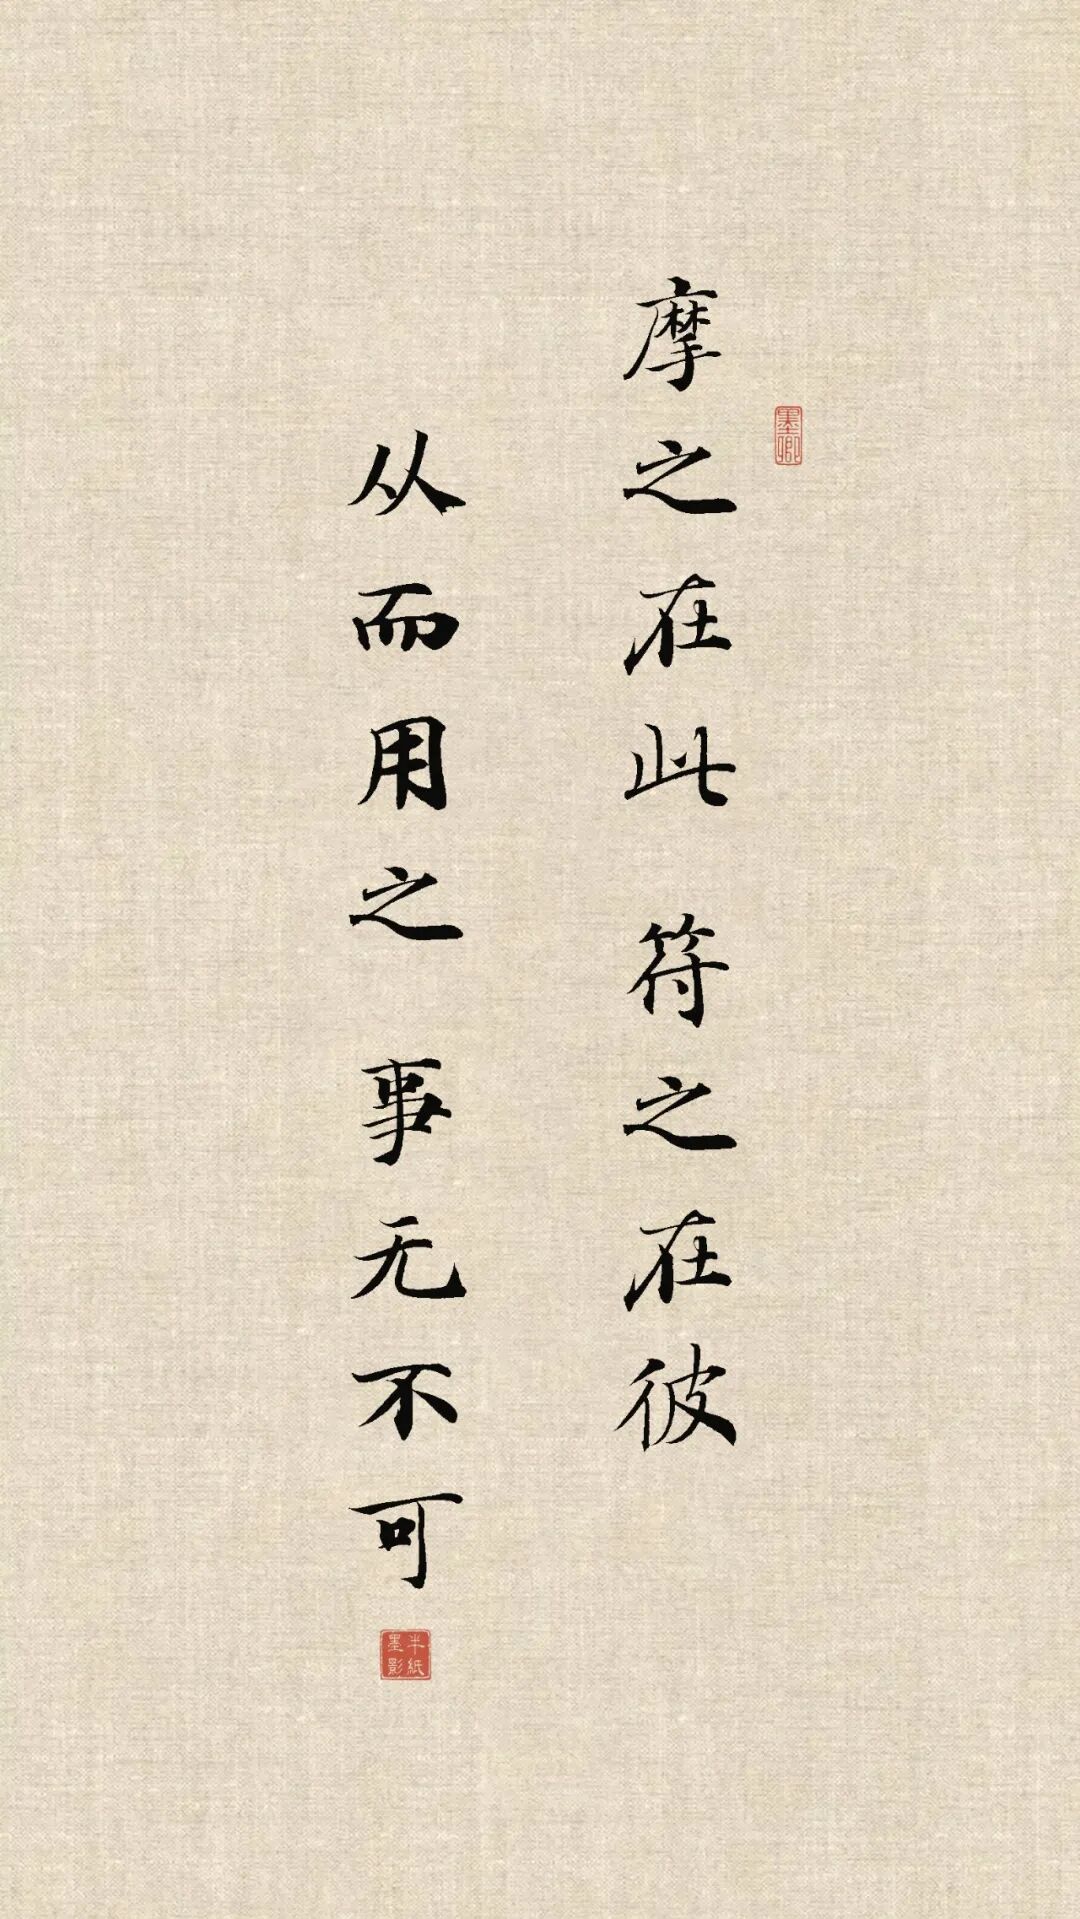 摩之在此 符之在彼
墨卿
从而用之 事无不可
半纸墨影